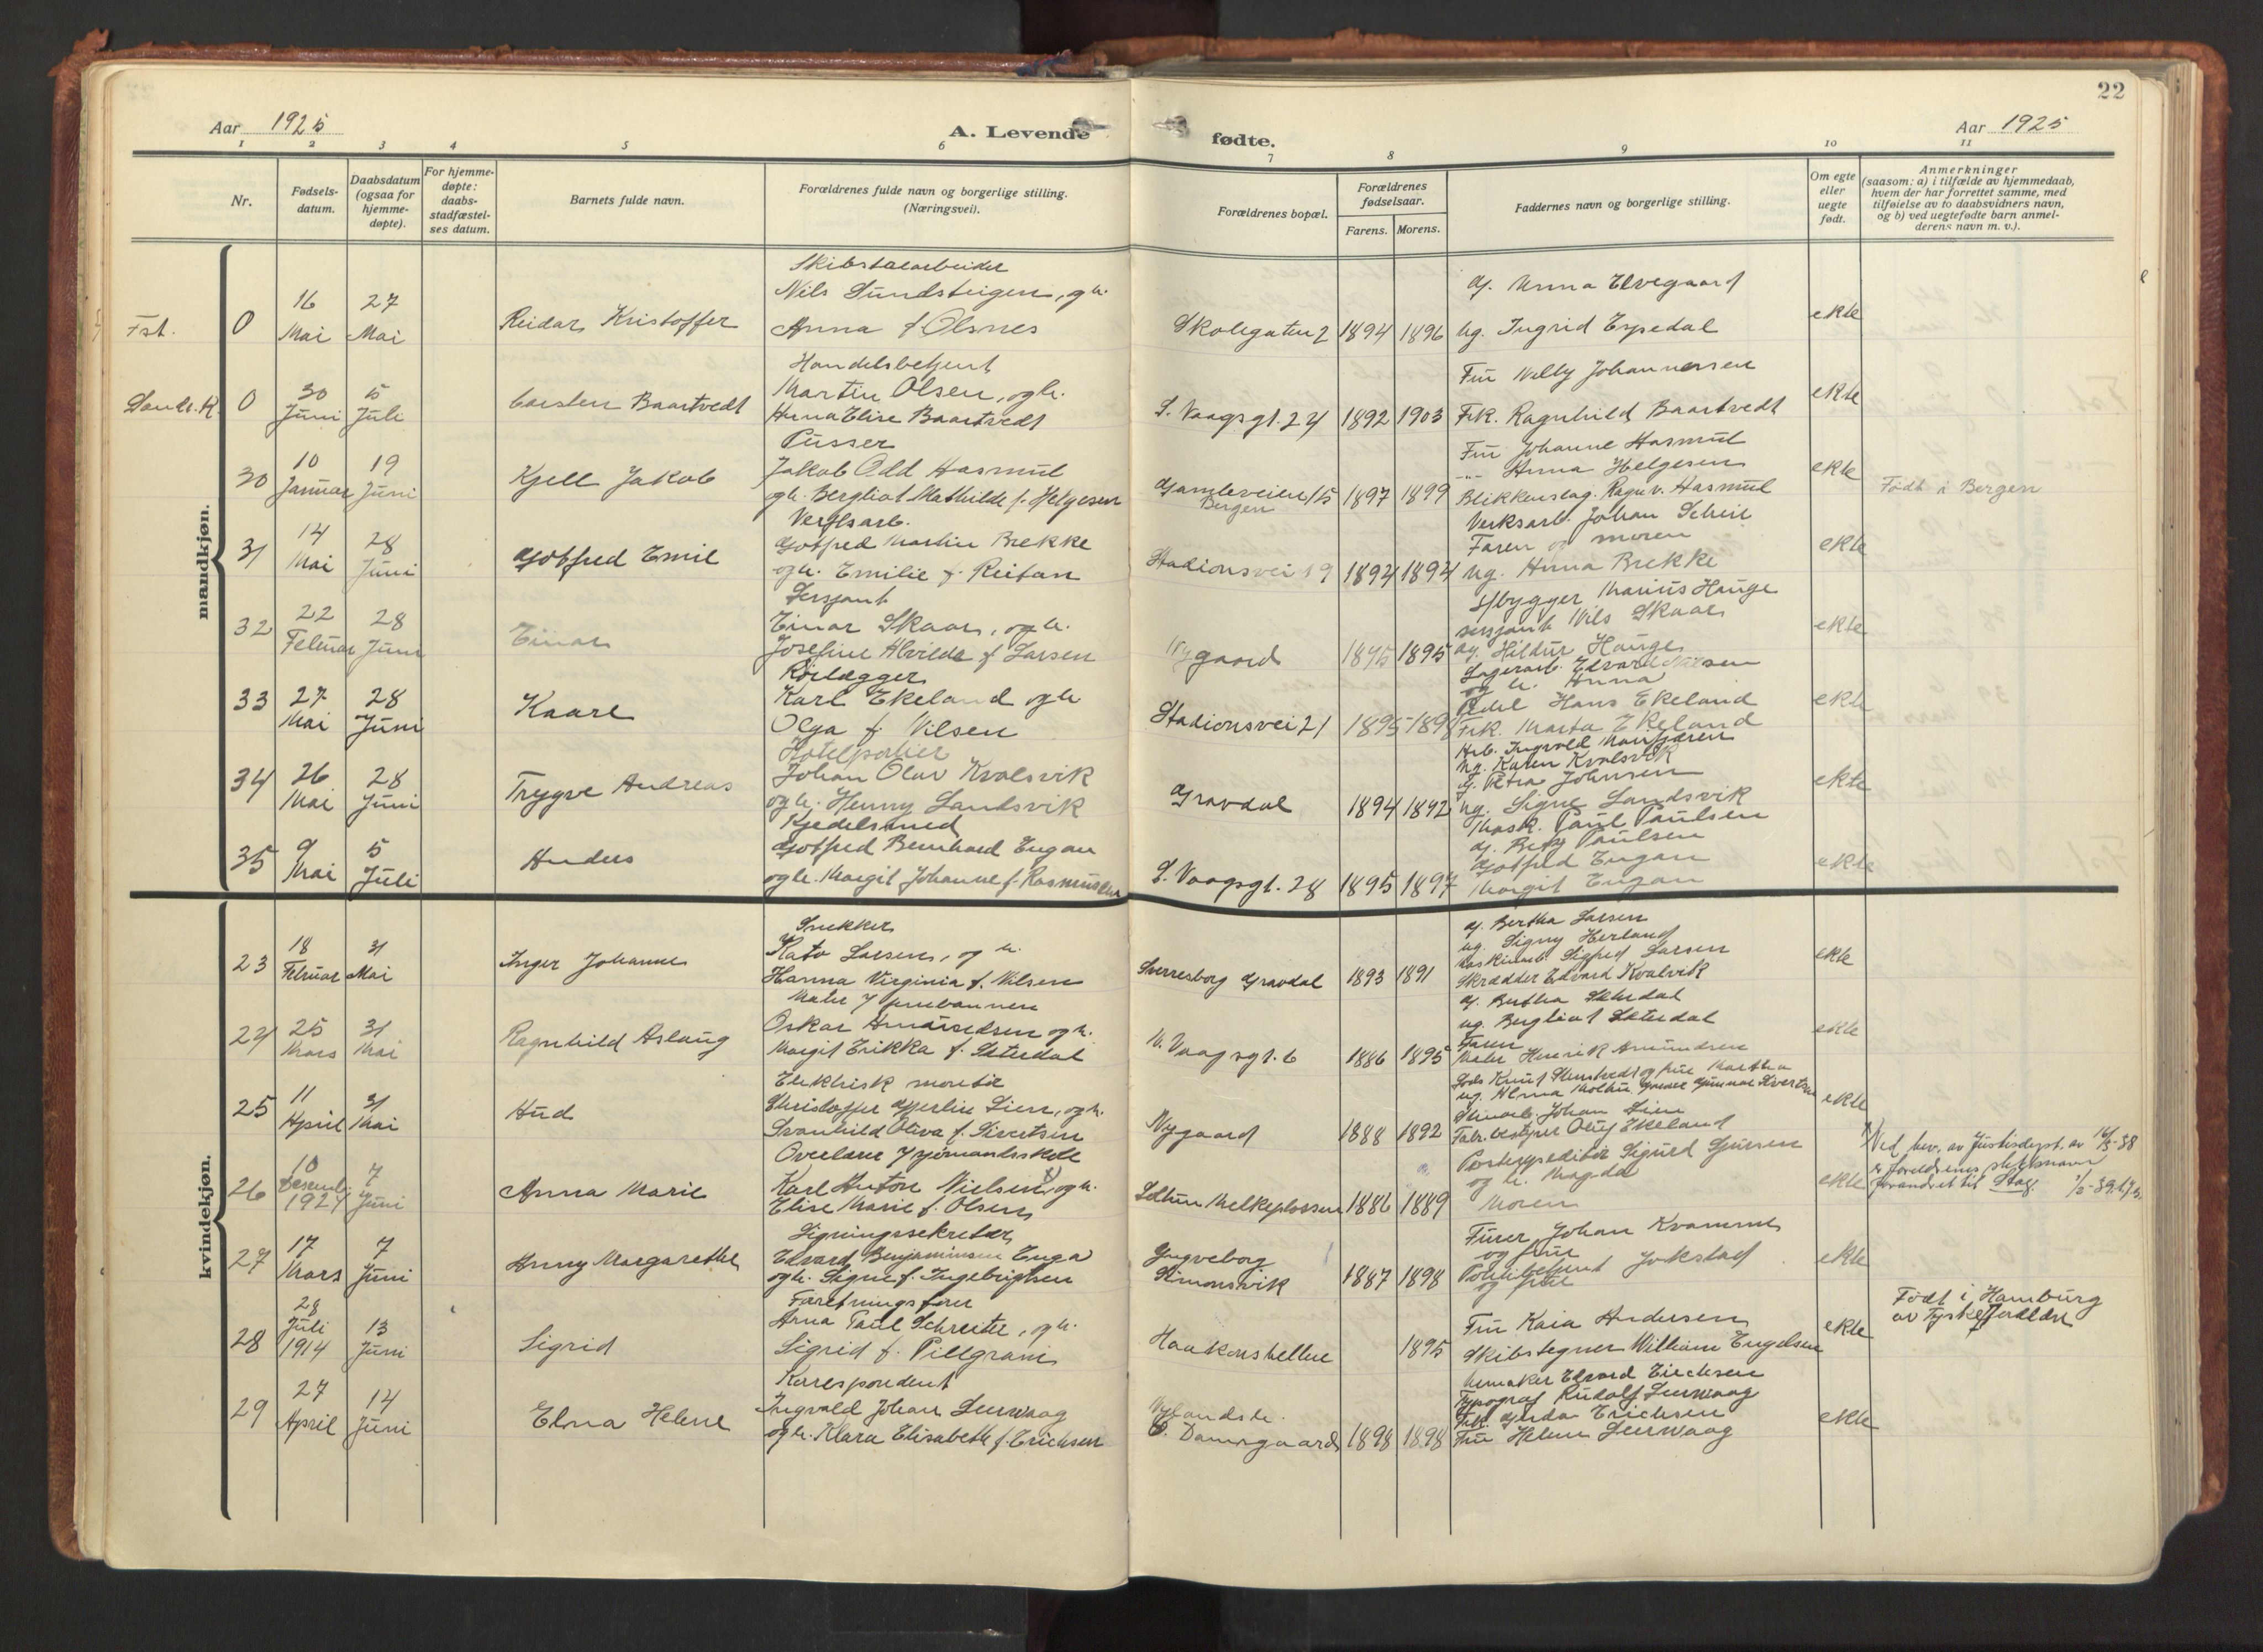 22
Aar 1925
A. Levende fødte.
Aar 1925
1 2 3 4 5 6 7 8 9 10 11
Nr.
Fødsels-
datum.
Daabsdatum
(ogsaa for
hjemme-
døpte).
For hjemme-
døpte:
daabs-
stadfæstel-
ses datum.
Barnets fulde navn.
Forældrenes fulde navn og borgerlige stilling.
(Næringsvei).
Forældrenes bopæl.
Forældrenes
fødselsaar.
Farens. Morens.
Faddernes navn og borgerlige stilling.
Om egte
eller
uegte
født.
Anmerkninger
(saasom: a) i tilfælde av hjemmedaab,
hvem der har forrettet samme, med
tilføielse av to daabsvidners navn,
og b) ved uegtefødte barn anmel-
derens navn m. v.).
mandkjøn.
Skibstalarbeider
16 27 Nils Sundsteigen, og h. G. Anna Elvegaard
Fst. 0 Mai Mai Reidar Kristoffer Anna f. Olsnes Skolegaten 2 1894 1896 Ug. Ingrid Espedal ekte
Handelsbetjent
30 5 Martin Olsen, og h. Fru Willy Johannessen
Sandv.K. 0 Juni Juli Carsten Baartvedt Anna Elise Baartvedt S. Vaagsgt. 24 1892 1903 Frk. Ragnhild Baartvedt ekte
Pusser Fru Johanne Hasmul
10 19 Jakob Odd Hasmul Anna Helgesen
30 Januar Juni Kjell Jakob og h. Bergliot Mathilde f. Helgesen Gamleveien 15 Bergen 1897 1899 Blikkenslag. Ragnv. Hasmul ekte Født i Bergen
Verksarb. Johan
14 28 Gotfred Martin Brekke Faren og moren
31 Mai Juni Gotfred Emil og h. Emilie f. Reitan Stadionsvei 19 1894 1894 Ug. Anna Brekke ekte
Sersjant Marius Hauge
22 28 Einar Skaar, og h. sersjant Nils Skaar
32 Februar Juni Einar Josefine Alvilda f. Larsen Nygaard 1895 1895 Ug. Hildur Hauge ekte
Rørlægger Lagerarb. Edvard Nilsen
27 28 Karl Ekeland og h. og h. Anna
33 Mai Juni Kaare Olga f. Nilsen Stadionsvei 21 1895 Hans Ekeland ekte
Frk. Marta Ekeland
Hotelportier Ug. Karen Kvalsvik
26 28 Johan Olav Kvalsvik G. Petra Johnsen
34 Mai Juni Trygve Andreas og h. Henny Sandsvik Gravdal 1894 1892 Ug. Signe Sandsvik ekte
Kjedelsmed Mask. Paul Paulsen
9 5 Gotfred Bernhard Engan G. Paulsen
35 Mai Juli Anders og h. Margit Johanne f. Rasmussen S. Vaagsgt. 28 1895 1897 Gotfred Engan ekte
Margit Engan
kvindekjøn.
Snekker G. Bertha Larsen
18 31 Kato Larsen, og h. ug. Signy Herland
23 Februar Mai Inger Johanne Hanna Virginia f. Nilsen Sverresborg Gravdal 1893 1891 Maskinarb. Sigfred Larsen ekte
Skrædder Edvard Kvalvik
Maler G. Bertha Sæterdal
25 31 Oskar Amundsen og h. ug. Bergliot Sæterdal
24 Mars Mai Ragnhild Aslaug Margit Erikka f. Sæterdal N. Vaagsgt. 6 1886 1895 Faren ekte
Maler Henrik Amundsen
Elektrisk montør
11 31 Christoffer Lien, og h.
25 April Mai Aud Svanhild Oliva f. Sivertsen Nygaard 1888 1892 Johan Lien ekte
Fabr. bestyrer Oluf Ekeland
Overlærer Sjømandsskole
10 7 Karl Anton Nielsen x) og h. Postexpeditør Sigurd
26 Desemb. 1924 Juni Anna Marie Elise Marie f. Olsen Melkeplassen 1886 1889 og h. Magda ekte
Moren
x) Ved bev. av Justisdept. av 16/3-38
er foreldrenes slektsnavn
forandret til Stag.
Ligningssekretær Furer Johan Kvamme
17 7 Edvard Benjaminsen Enga og frue
27 Mars Juni Anny Margarethe og h. Signe f. Ingebrigtsen Yngveborg Simonsvik 1887 1898 Politibetjent Jokstad ekte
og frue
28 Forretningsfører
Juli 13 Arna Paul Schreiter, og h. Fru Kaia Andersen
28 1914 Juni Sigrid Sigrid f. Pillgram Haakonshellue 1895 Skibstegner William Engelsen ekte
Født i Hamburg
av Tyske forældre
Korrespondent Urmaker Edvard Erichsen
27 14 Ingvald Johan Leirvaag Typograf Rudolf Leirvaag
29 April Juni Elna Helene og h. Klara Elisabeth f. Erichsen Damsgaard 1898 1898 Frk. Gerda Erichsen ekte
Fru Helene Leirvaag